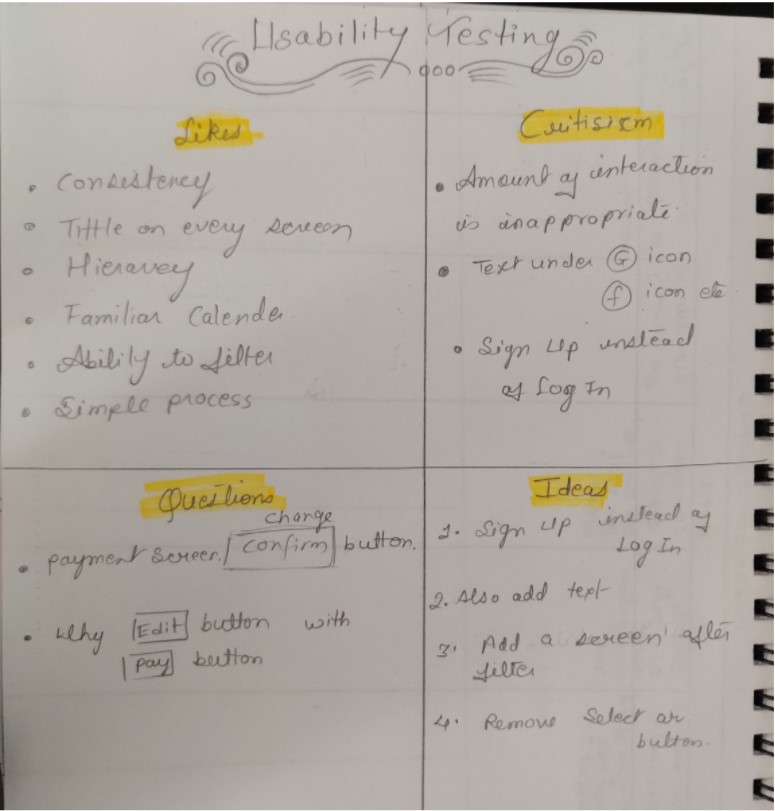 Usability Testing
Likes
• Consistency
• Tittle on every screen
• Hieravey
• Familiar Calender
• Ability to filter
• Simple process
Critisism
• Amount of interaction
is inappropriate.
• Text under G icon
f icon etc
• Sign Up instead
of Log In
Questions
change
• payment screen / Confirm button.
• Why Edit button with
Pay button
Ideas
1. Sign Up instead of
Log In
2. Also add text
3. Add a screen after
filter
4. Remove Select ar
button.